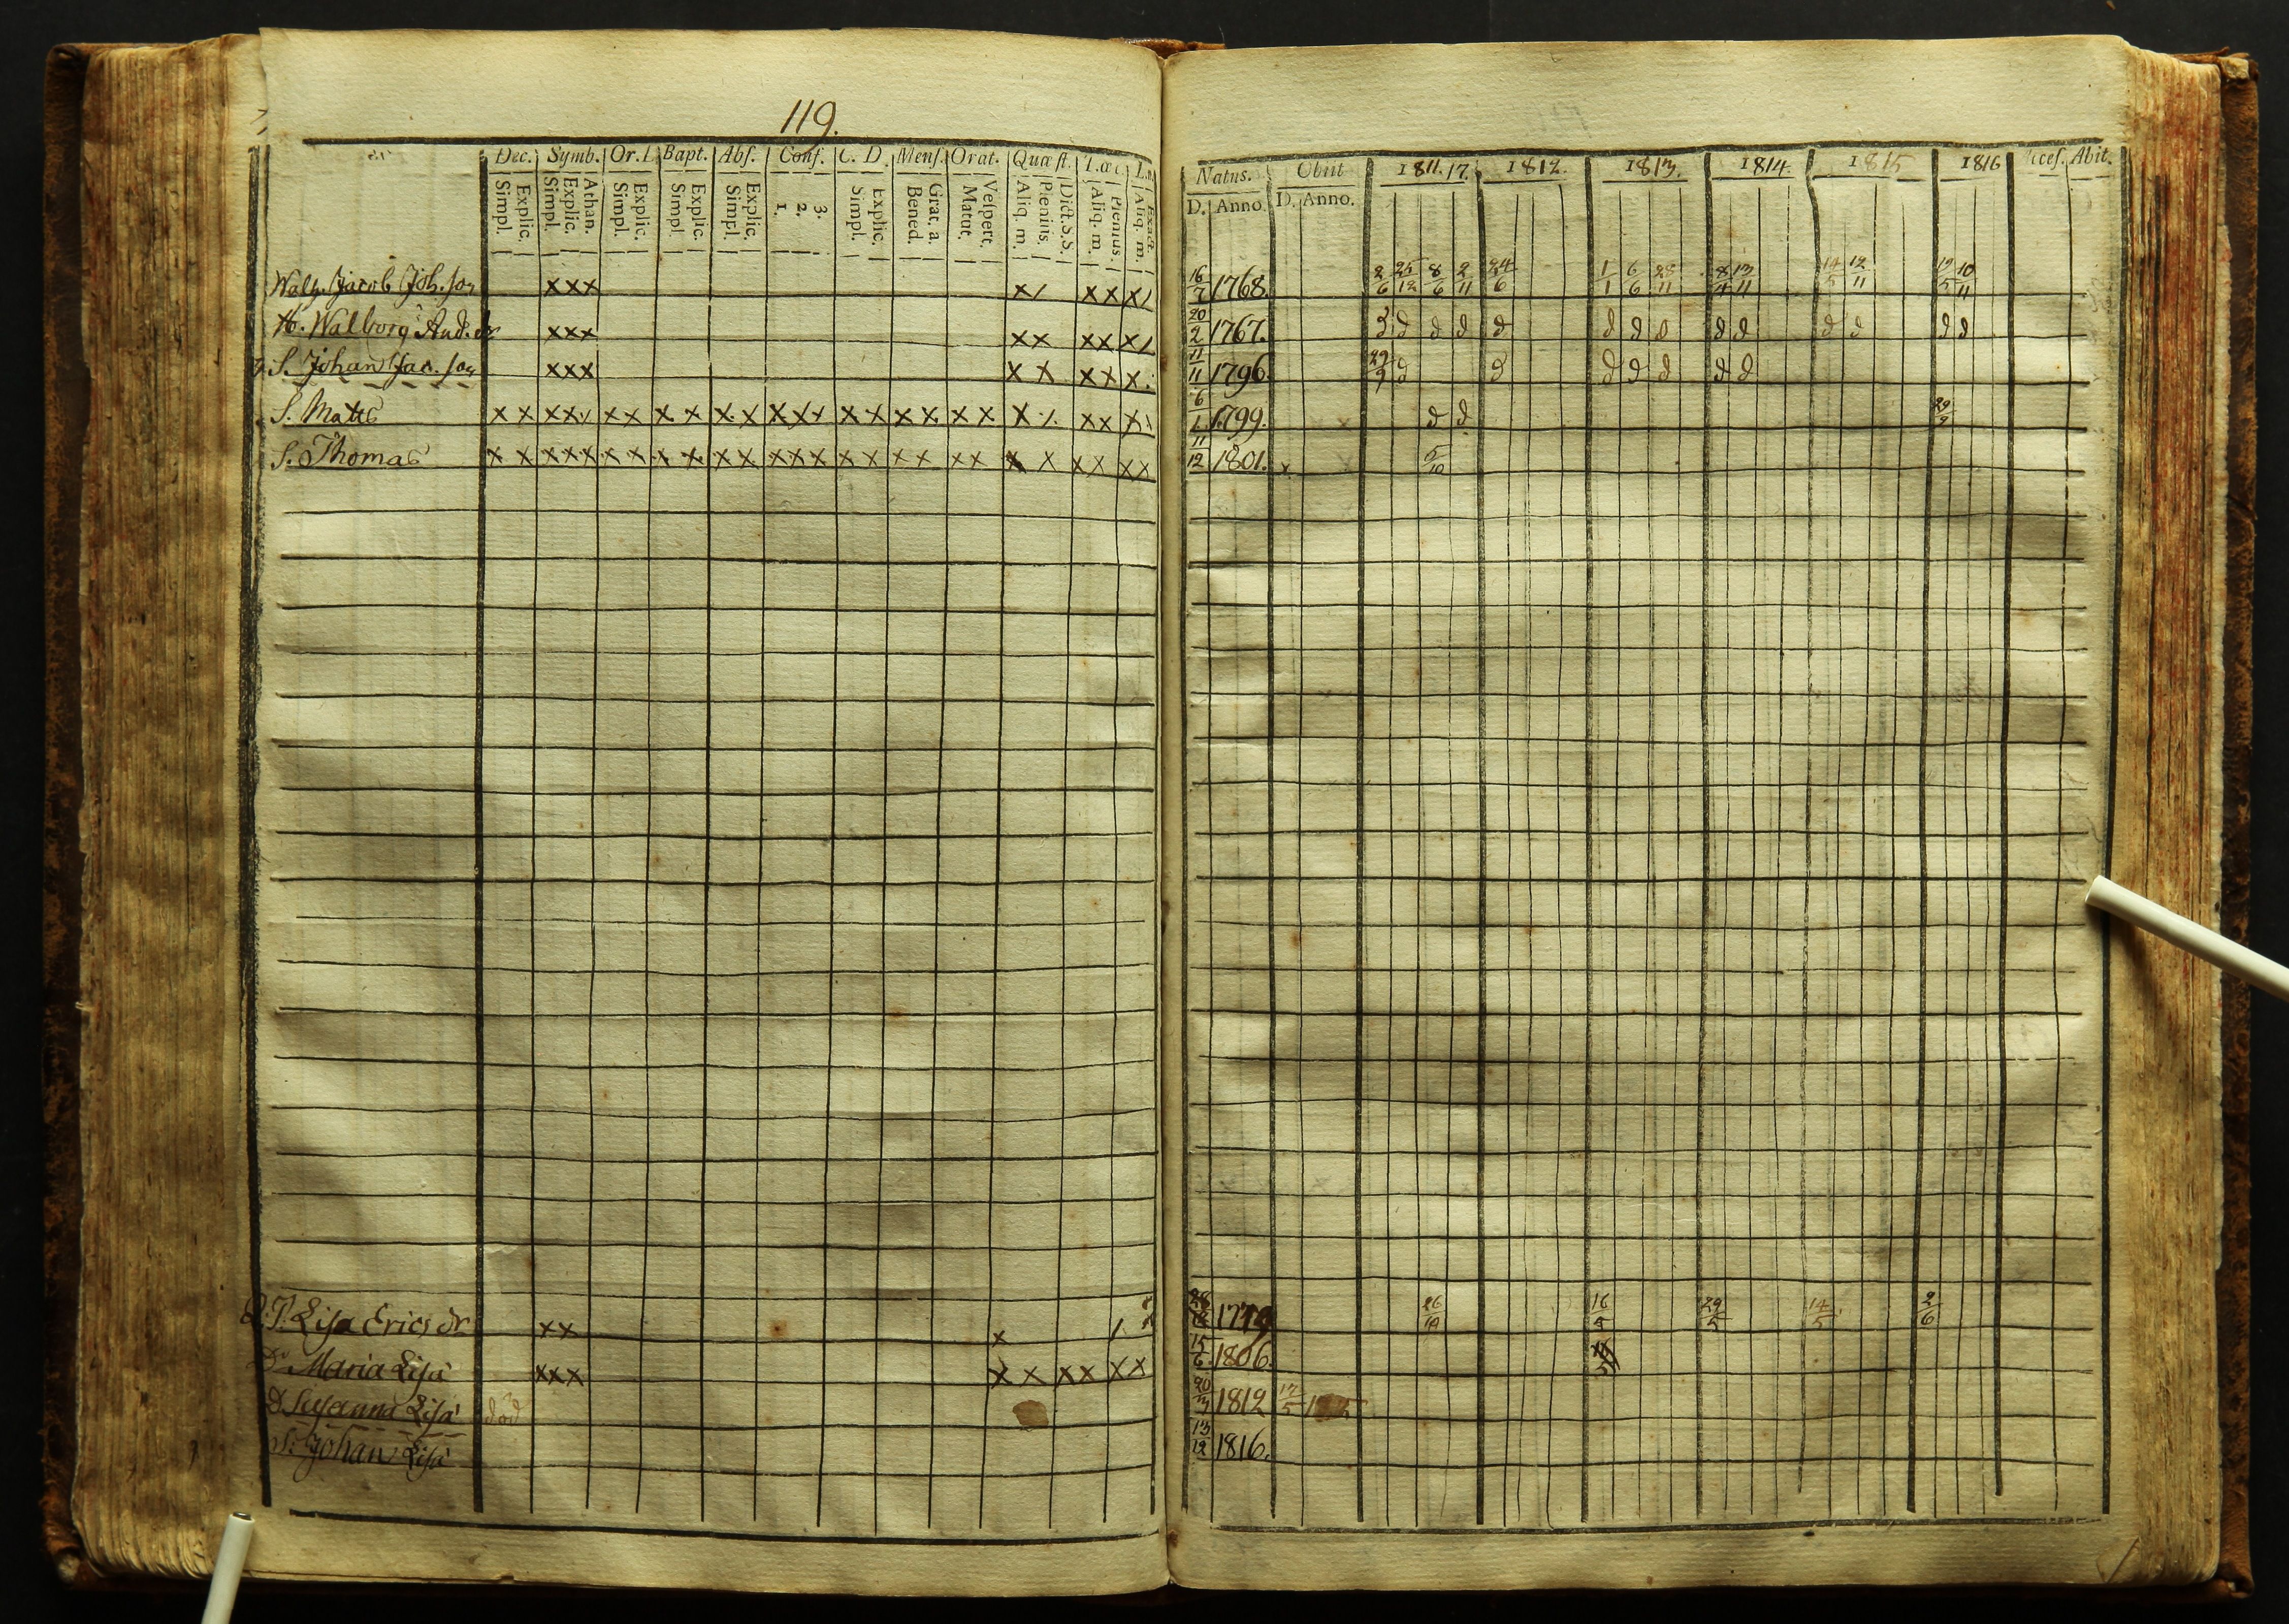 119.
Dec. Symb. Or. D. Bapt. Abſ. Conf. C. D. Menſ. Orat. Quæſt.
Simpl. Explic. Simpl. Explic. Athan. Simpl. Explic. Simpl. Explic. Simpl. Explic. 1. 2. 3. Simpl. Explic. Bened. Grat. a. Matut. Veſpert. Aliq. m. Pleniùs. Dict. S.S. Aliq. m. Pleniùs. Aliq. m. Exact.
Jacob Joh. son xxx x/ xx x/
H. Walborg And. dr xxx xx xx x/
S. Johan Jac. son xxx x x xx x
S. Matts x x xx/ x x x x x x xxx x x x x x x x /. xx x\
S. Thomas x x xxx x x x x x x xxx x x x x x x x x xx xx
Lisa Erics dr xx x /
Dr Maria Lisa xxx x x xx xx
d Susanna Lisa död
S. Johan Lisa
Natus. Obiit 1811. 17. 1812. 1813. 1814. 1815 1816 Abit.
D. Anno. D. Anno.
16/7 1768. 2/6 25/12 8/6 2/11 24/6 1/1 6/6 28/11 8/4 13/11 14/5 12/11 10/11
20/2 1767. d d d d d d d d d d d d d
11/11 1796 29/9 d d d d d d d
6/1 1799. d d 29/9
11/12 1801. x 5/10
26/10 16/5 29/5 14/5 2/6
15/6 1806.
1812 17/5
13/12 1816.